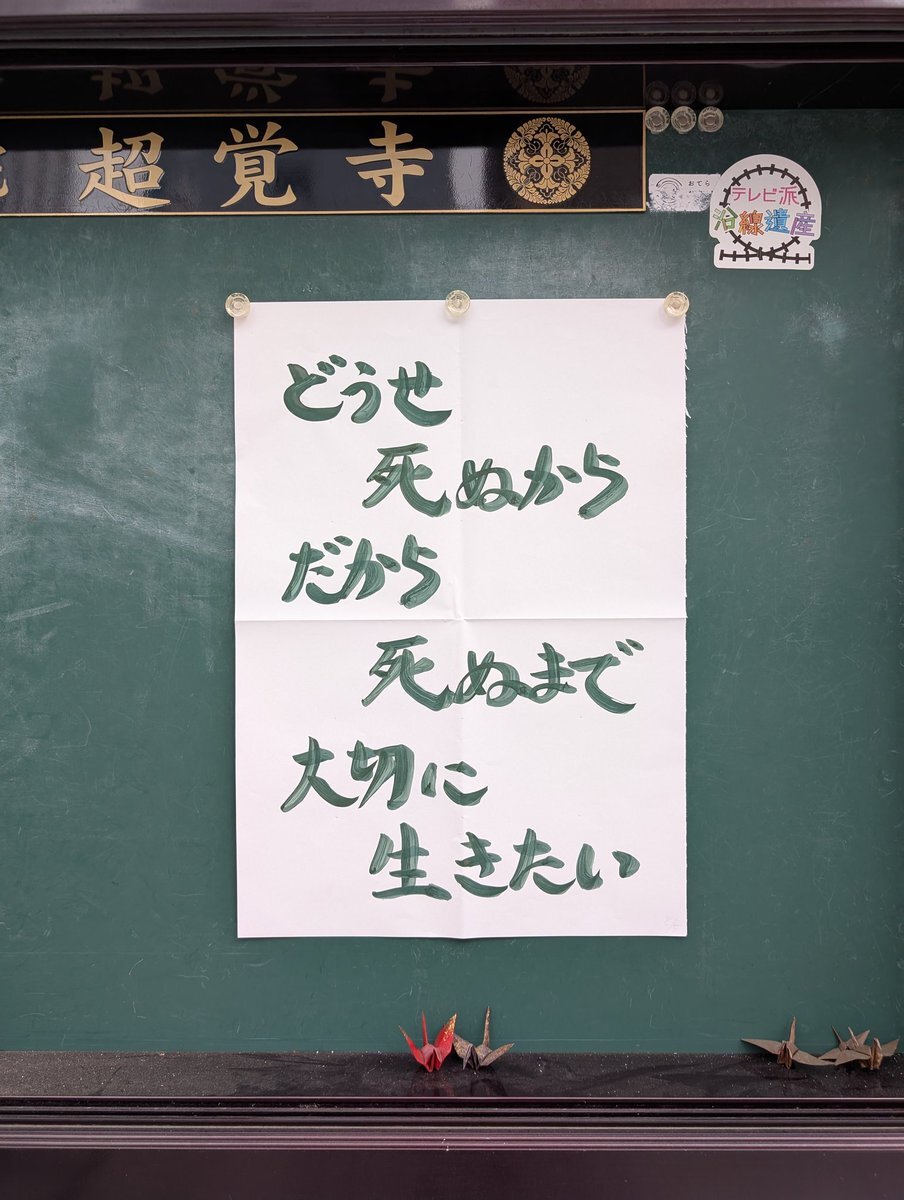 超覚寺
テレビ派
沿線遺産
おてら
どうせ
死ぬから
だから
死ぬまで
大切に
生きたい